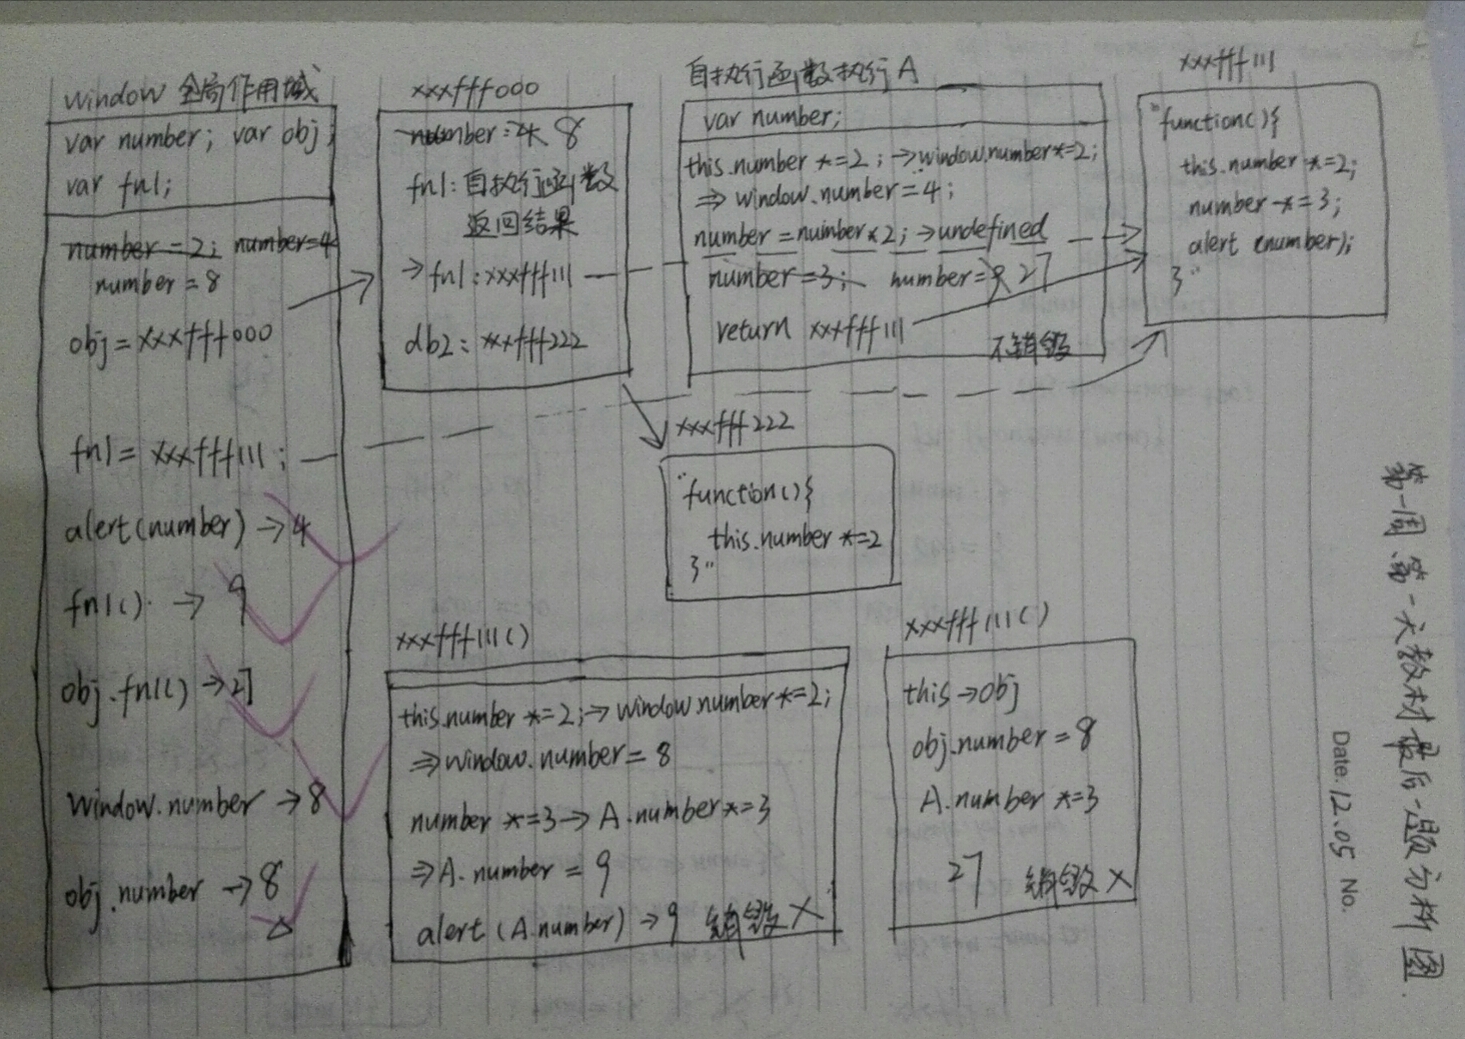 window 全局作用域
var number; var obj;
var fn1;
number=2; number=4
number=8
obj=xxxfff000
fn1=xxxfff111;
alert(number)→4
fn1()→9
obj.fn1()→27
window.number→8
obj.number→8
xxxfff000
number:4 8
fn1:自执行函数
返回结果
→fn1:xxxfff111
db2:xxxfff222
自执行函数执行A
var number;
this.number*=2;→window.number*=2;
⇒window.number=4;
number=number*2;→undefined
number=3; number=9 27
return xxxfff111
不销毁
xxxfff111
"function(){
this.number*=2;
number*=3;
alert(number);
}"
xxxfff222
"function(){
this.number*=2
}"
xxxfff111()
this.number*=2;→window.number*=2;
⇒window.number=8
number*=3→A.number*=3
⇒A.number=9
alert(A.number)→9 销毁×
xxxfff111()
this→obj
obj.number=8
A.number*=3
27 销毁×
第一周.第一天教材最后一题分析图.
Date. 12.05 No.